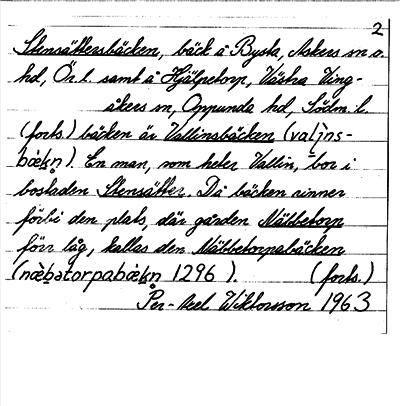 2
Stensättersbäcken, bäck å Bysta, Askers sn o.
hd, Ör. l. samt å Hjälpetorp, Västra Ving-
åkers sn, Oppunda hd, Södm. l.
(forts.) bäcken är Vallinsbäcken (valįns-
bäkņ). En man, som heter Vallin, bor i
bostaden Stensätter. Då bäcken rinner
förbi den plats, där gården Näbbetorp
förr låg, kallas den Näbbetorpabäcken
(næ̀bətorpabäkņ 1296). (forts.)
Per-Axel Wiktorsson 1963